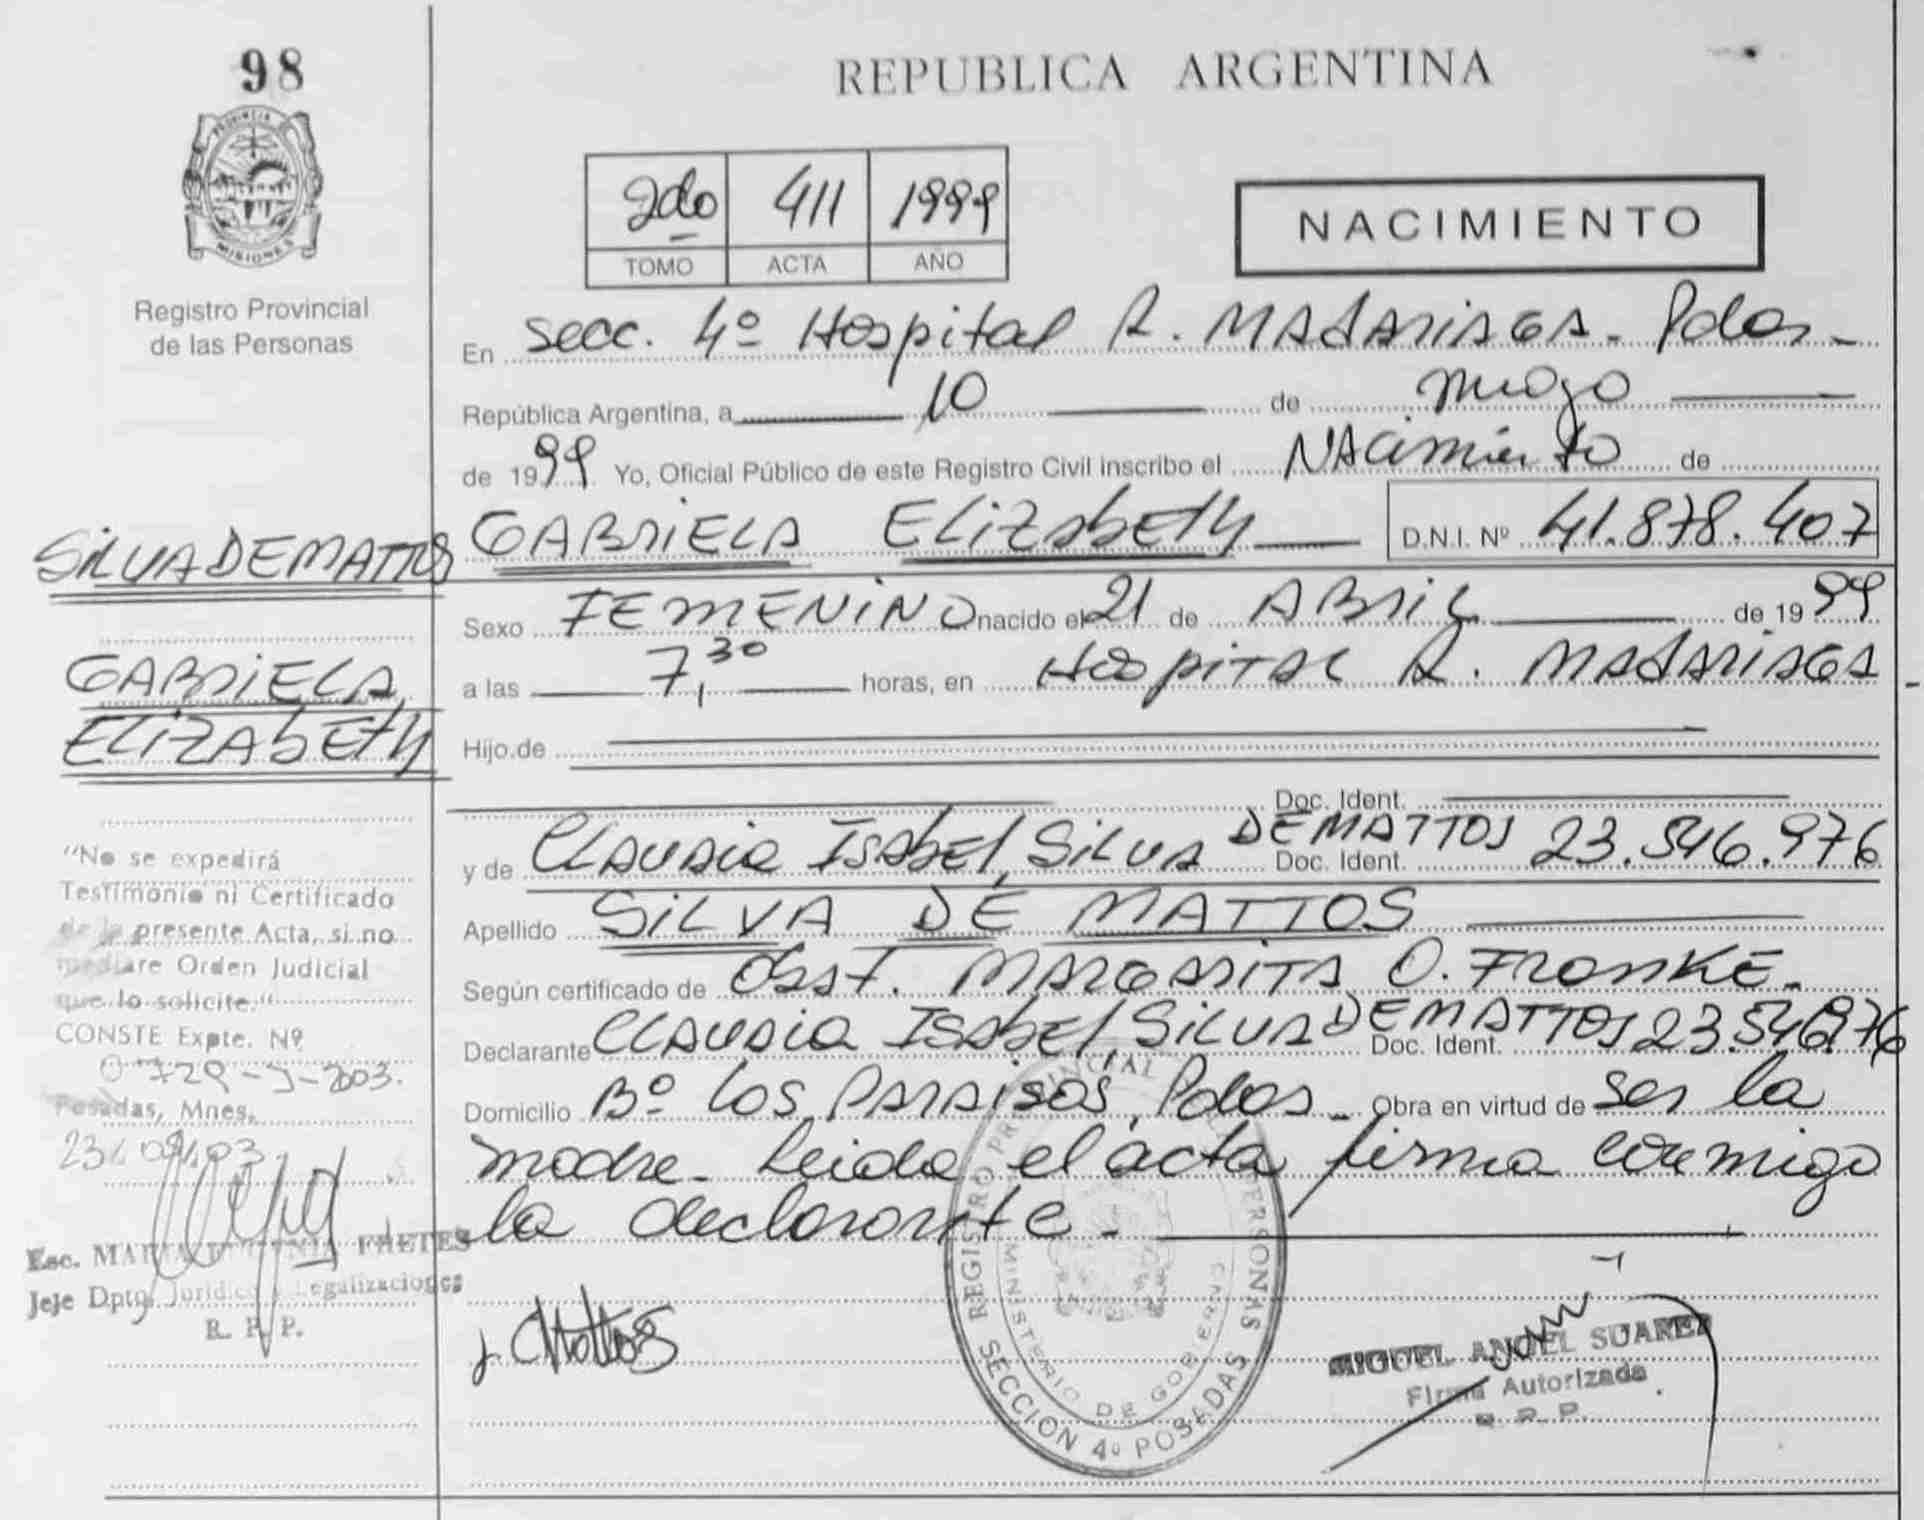 98
REPUBLICA ARGENTINA
PROVINCIA DE
MISIONES
Registro Provincial
de las Personas
2do 411 1999
TOMO ACTA AÑO
NACIMIENTO
En secc. 4º Hospital R. MADARIAGA - Pdas -
República Argentina, a 10 de mayo
de 1999 Yo, Oficial Público de este Registro Civil inscribo el NACimiento de
GABRIELA ELIZABETH D.N.I. Nº 41.878.407
SILVA DEMATTOS
Sexo FEMENINO nacido el 21 de ABRIL de 1999
GABRIELA
ELIZABETH
a las 7,30 horas, en HOSPITAL R. MADARIAGA -
Hijo de
Doc. Ident.
y de CLAUDIA ISABEL SILVA DEMATTOS Doc. Ident. 23.546.976
Apellido SILVA DE MATTOS
Según certificado de Obst. MARGARITA O. FRONKE -
Declarante CLAUDIA ISABEL SILVA DEMATTOS Doc. Ident. 23.546.976
Domicilio Bº LOS PARAISOS, Pdas - Obra en virtud de ser la
madre - Leida el acta firma conmigo
la declarante -
"No se expedirá
Testimonio ni Certificado
de la presente Acta, si no
mediare Orden Judicial
que lo solicite."
CONSTE Expte. Nº
729 - J - 2003.
Posadas, Mnes.
23/09/03
Esc. MARIA EUGENIA FRETES
Jefe Dpto. Juridico Legalizaciones
R. P. P.
REGISTRO PROVINCIAL DE LAS PERSONAS
MINISTERIO DE GOBIERNO
SECCION 4º POSADAS
MIGUEL ANGEL SUAREZ
Firma Autorizada
R. P. P.